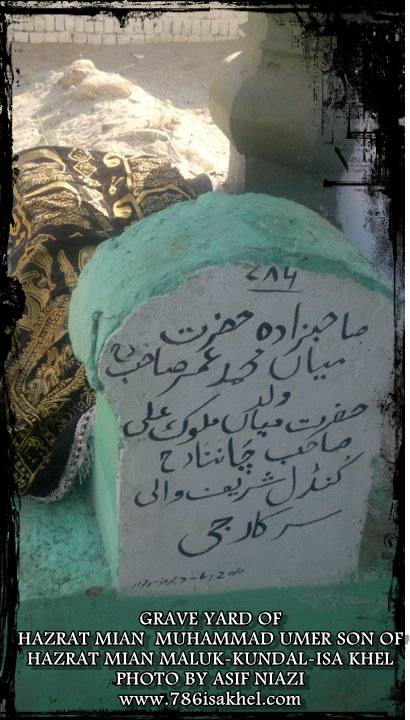 ۷۸۶
صاحبزادہ حضرت
میاں محمد عمر صاحبؒ
ولد
حضرت میاں ملوک علی
صاحب
کنڈل شریف والی
سرکار جی
GRAVE YARD OF
HAZRAT MIAN MUHAMMAD UMER SON OF
HAZRAT MIAN MALUK-KUNDAL-ISA KHEL
PHOTO BY ASIF NIAZI
www.786isakhel.com